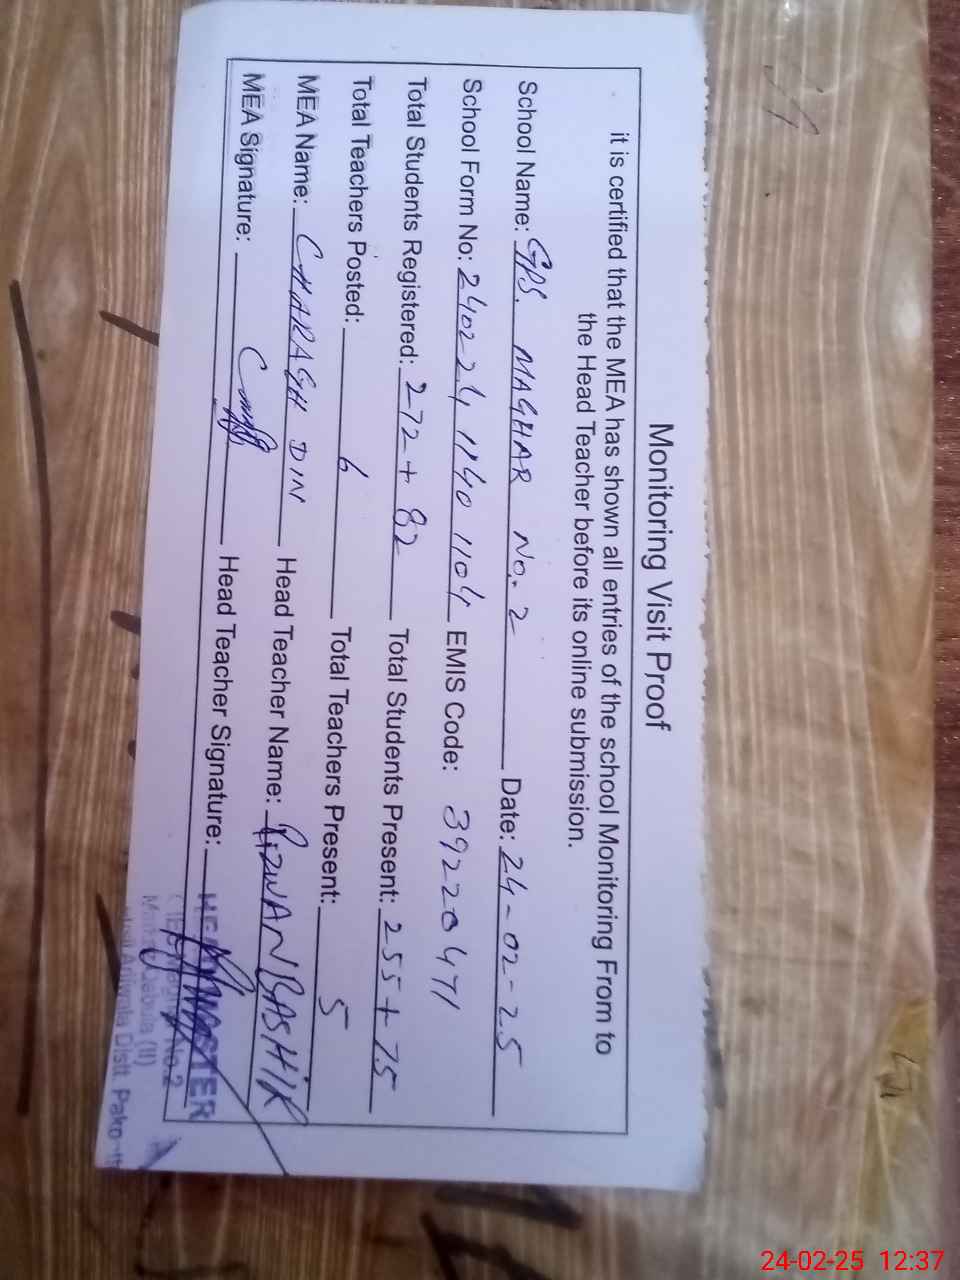 Monitoring Visit Proof
it is certified that the MEA has shown all entries of the school Monitoring From to
the Head Teacher before its online submission.
School Name: GPS. MAGHAR No. 2 Date: 24-02-25
School Form No: 2402241140 1104 EMIS Code: 39220471
Total Students Registered: 272 + 82 Total Students Present: 255 + 75
Total Teachers Posted: 6 Total Teachers Present: 5
MEA Name: CHARAGH DIN Head Teacher Name: RIZWAN BASHIR
MEA Signature: Head Teacher Signature:
HEADMASTER
No.2
(II)
Arifwala Distt. Pak
24-02-25 12:37